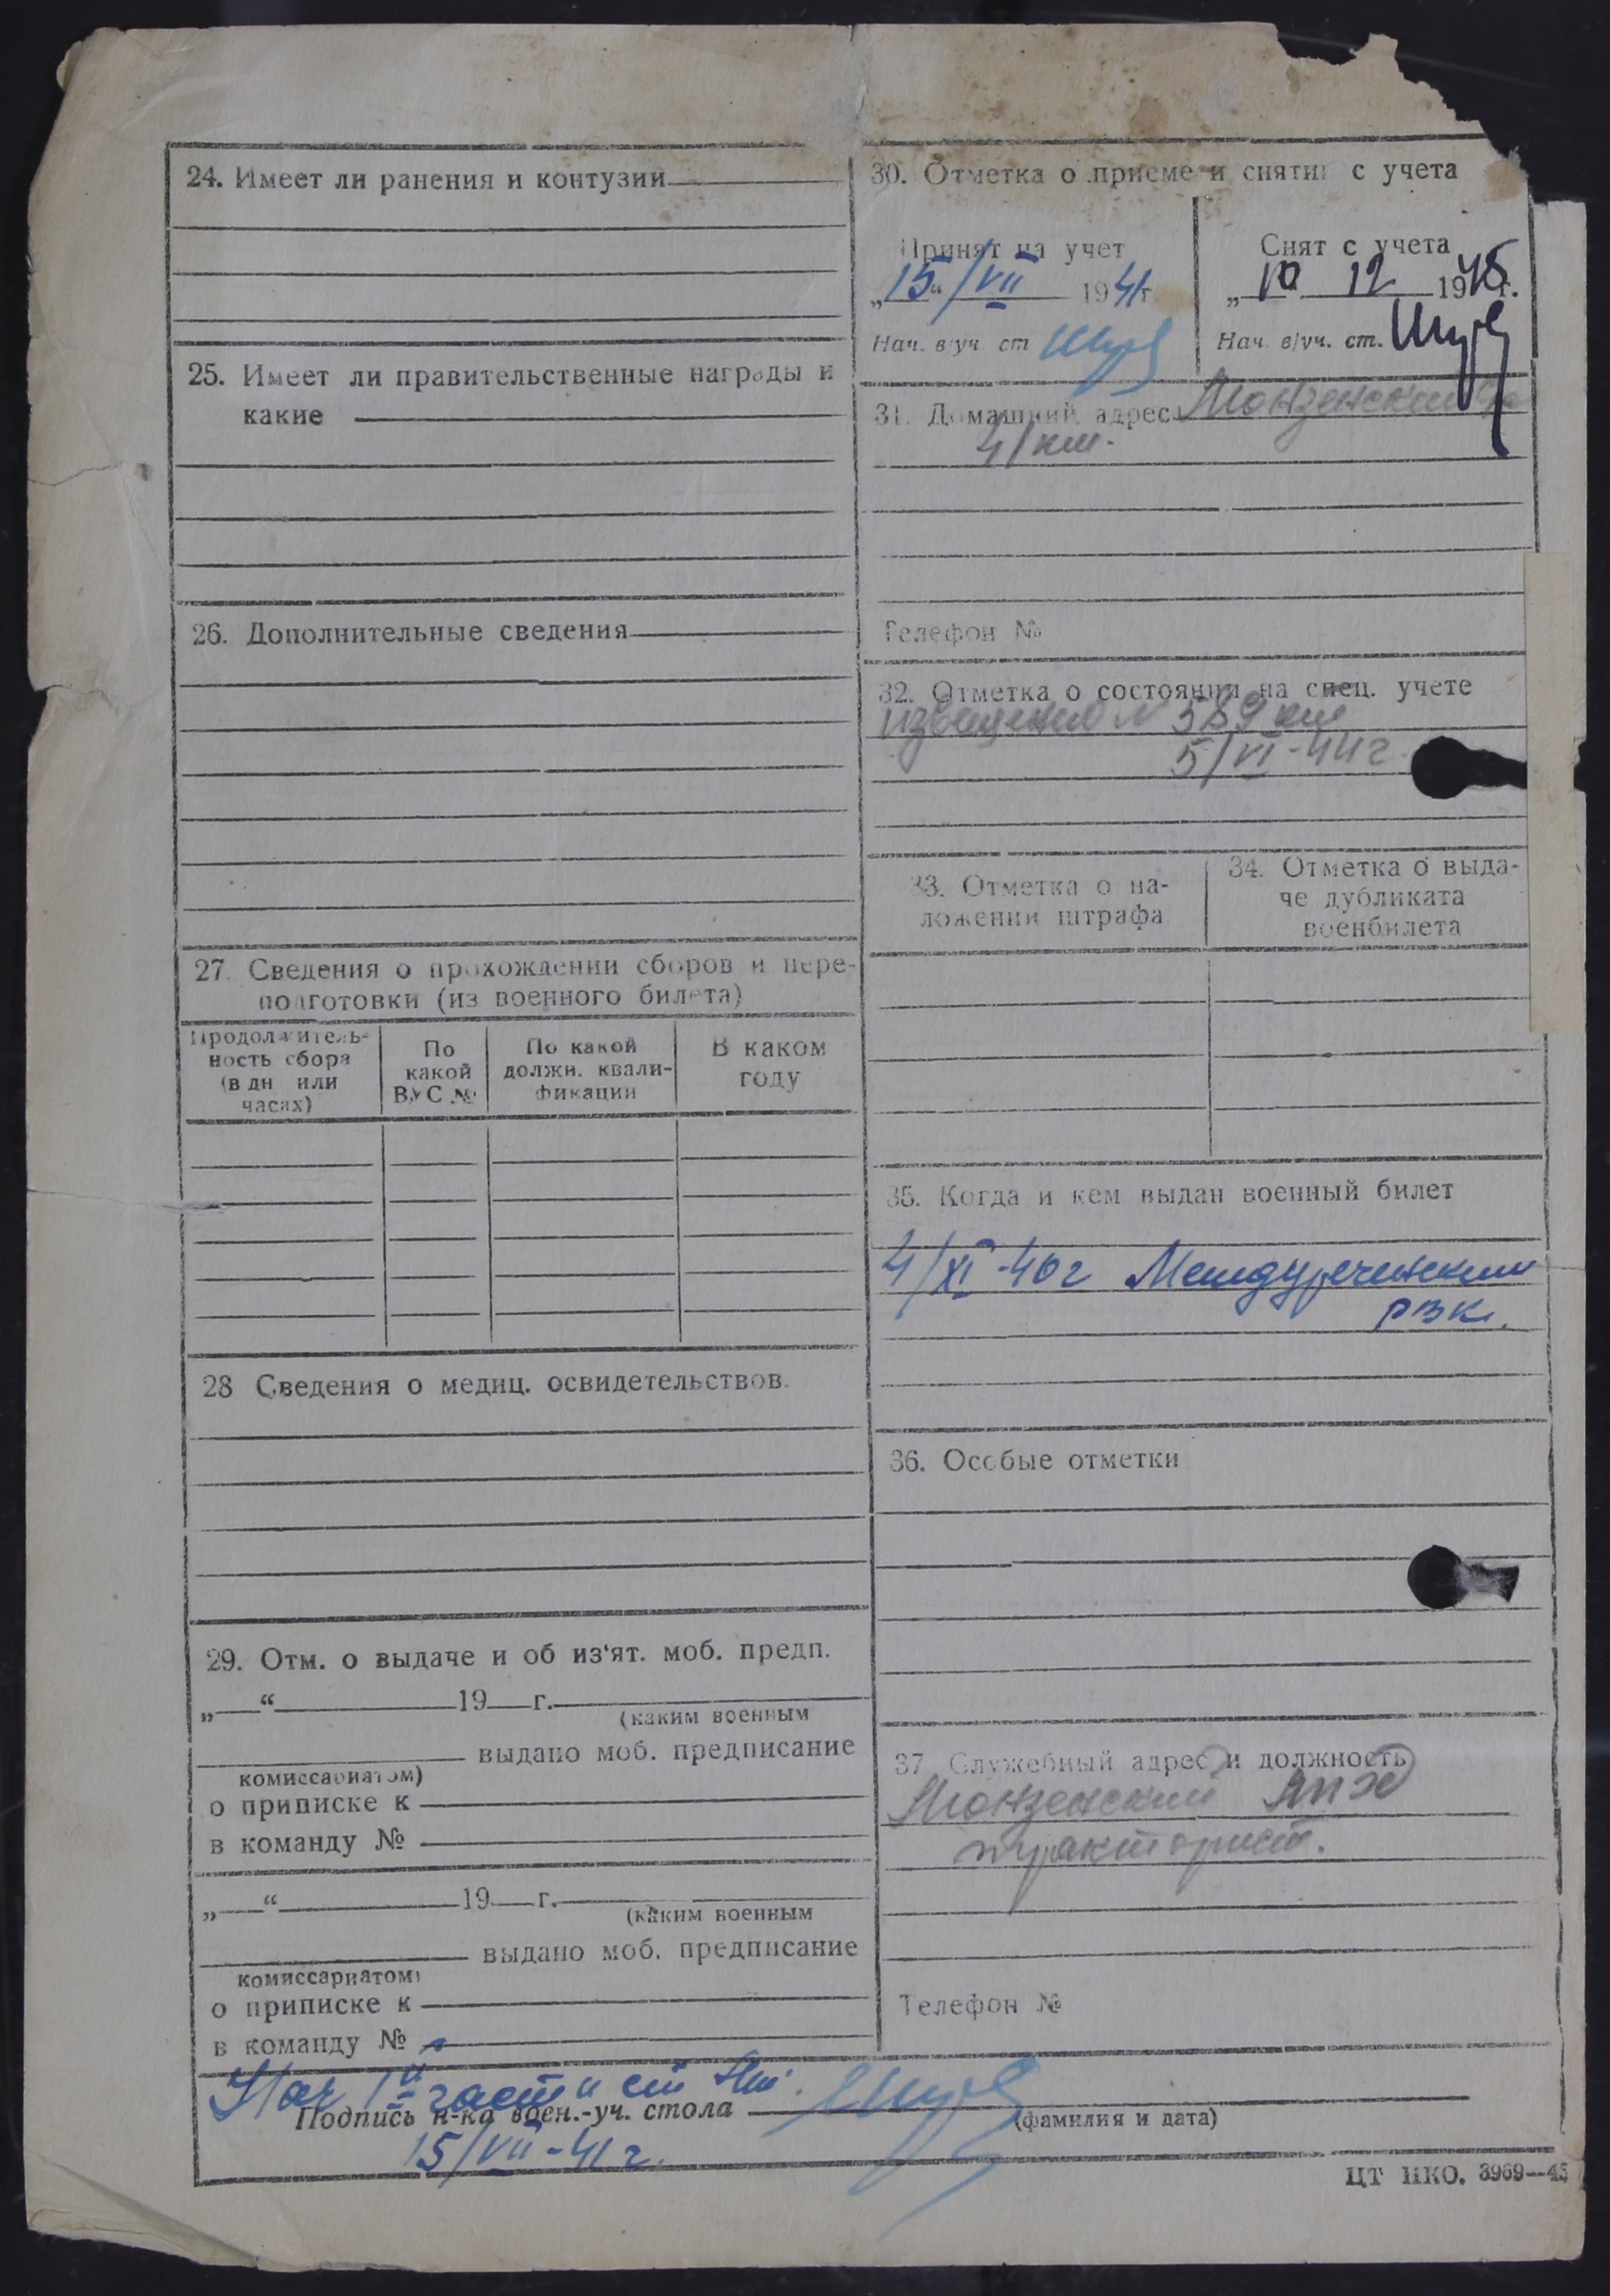 24. Имеет ли ранения и контузии
25. Имеет ли правительственные награды и
какие
26. Дополнительные сведения
27. Сведения о прохождении сборов и пере-
подготовки (из военного билета)
Продолжитель-
ность сбора
(в дн или
часах)
По
какой
ВУС №
По какой
должн. квали-
фикации
В каком
году
28 Сведения о медиц. освидетельствов.
29. Отм. о выдаче и об из'ят. моб. предп.
„ “ 19 г.
(каким военным
выдано моб. предписание
комиссариатом)
о приписке к
в команду №
„ “ 19 г.
(каким военным
выдано моб. предписание
комиссариатом)
о приписке к
в команду №
30. Отметка о приеме и снятии с учета
Принят на учет
„15“/VII 1941г
Нач. в/уч ст
Снят с учета
„10 12 1945г.
Нач. в/уч. ст.
31. Домашний адрес Монзенский
4/км.
Телефон №
32. Отметка о состоянии на спец. учете
извещение № 589
5/VI-44г.
33. Отметка о на-
ложении штрафа
34. Отметка о выда-
че дубликата
военбилета
35. Когда и кем выдан военный билет
4/XI-40г Междуреченским
РВК.
36. Особые отметки
37. Служебный адрес и должность
Монзенский ЛПХ
тракторист.
Телефон №
Нач 1й части
Подпись н-ка воен.-уч. стола
(фамилия и дата)
15/VII-41г.
ЦТ НКО. 3969—45